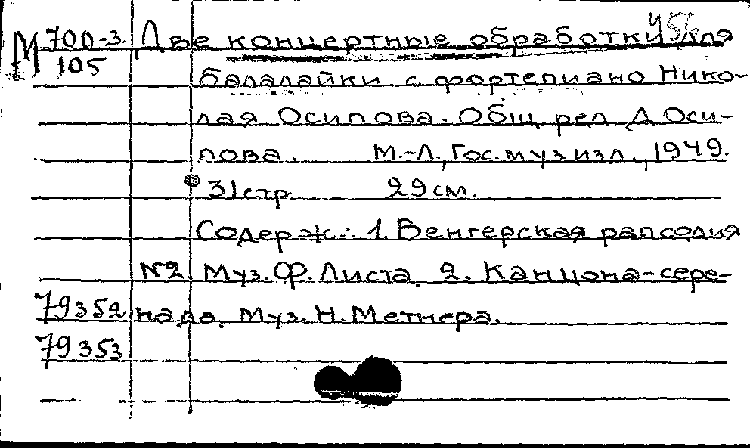 М 700-3 Две концертные обработки для
105 балалайки с фортепиано Нико-
лая Осипова. Общ. ред. Д. Оси-
пова. М.-Л., Гос. муз. изд., 1949.
31 стр. 29 см.
Содерж.: 1. Венгерская рапсодия
№2 Муз. Ф. Листа. 2. Канцона-сере-
79352 нада. Муз. Н. Метнера.
79353